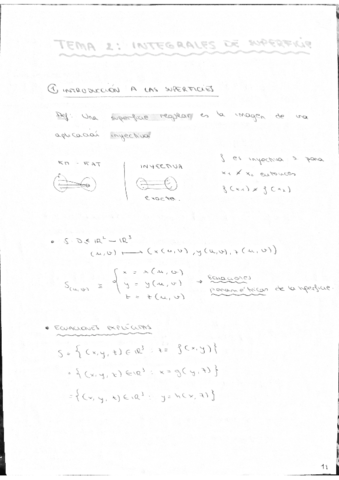 TEMA 2: INTEGRALES DE SUPERFICIE
① INTRODUCCIÓN A LAS SUPERFICIES
Def Una superficie regular es la imagen de una
aplicación inyectiva
INYECTIVA
EXACTO
f es inyectiva si para
x₁ ≠ x₂ entonces
f(x₁) ≠ f(x₂)
• S: D ⊂ ℝ² → ℝ³
(u,v) → (x(u,v), y(u,v), z(u,v))
S(u,v) = { x = x(u,v)
y = y(u,v) → Ecuaciones
z = z(u,v) paramétricas de la superficie.
• ECUACIONES EXPLÍCITAS
S = {(x,y,z) ∈ ℝ³ : z = f(x,y)}
= {(x,y,z) ∈ ℝ³ : x = g(y,z)}
= {(x,y,z) ∈ ℝ³ : y = h(x,z)}